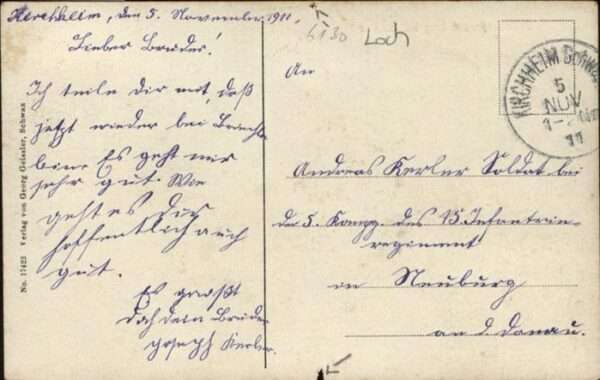 Kirchheim, den 5. November 1911.
Lieber Bruder!
Ich teile dir mit, daß
jetzt wieder bei
bin. Es geht mir
sehr gut. Wie
geht es dir
hoffentlich auch
gut.
Es grüßt
Dich dein Bruder
Joseph Kerler.
6130 Loch
An
Andreas Kerler Soldat bei
der 5. Komp. des 15 Infanterie-
regiment
in Neuburg
an d. Donau.
KIRCHHEIM SCHWAB
5
NOV
11
No. 17423 Verlag von Georg Geissler, Schwab